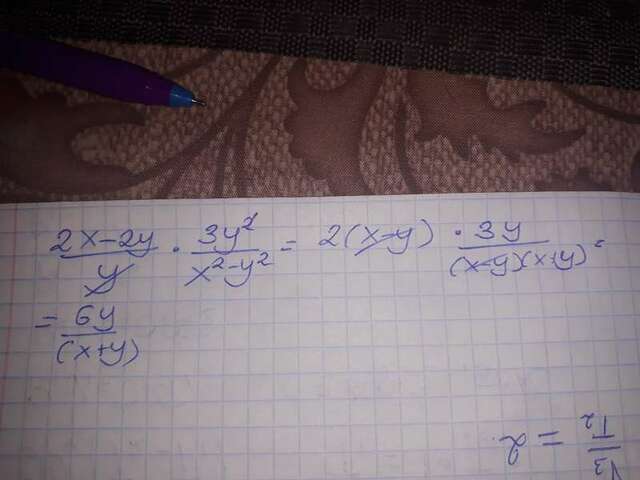 (2x-2y)/y · 3y²/(x²-y²) = 2(x-y) · 3y/((x-y)(x+y)) =
= 6y/(x+y)